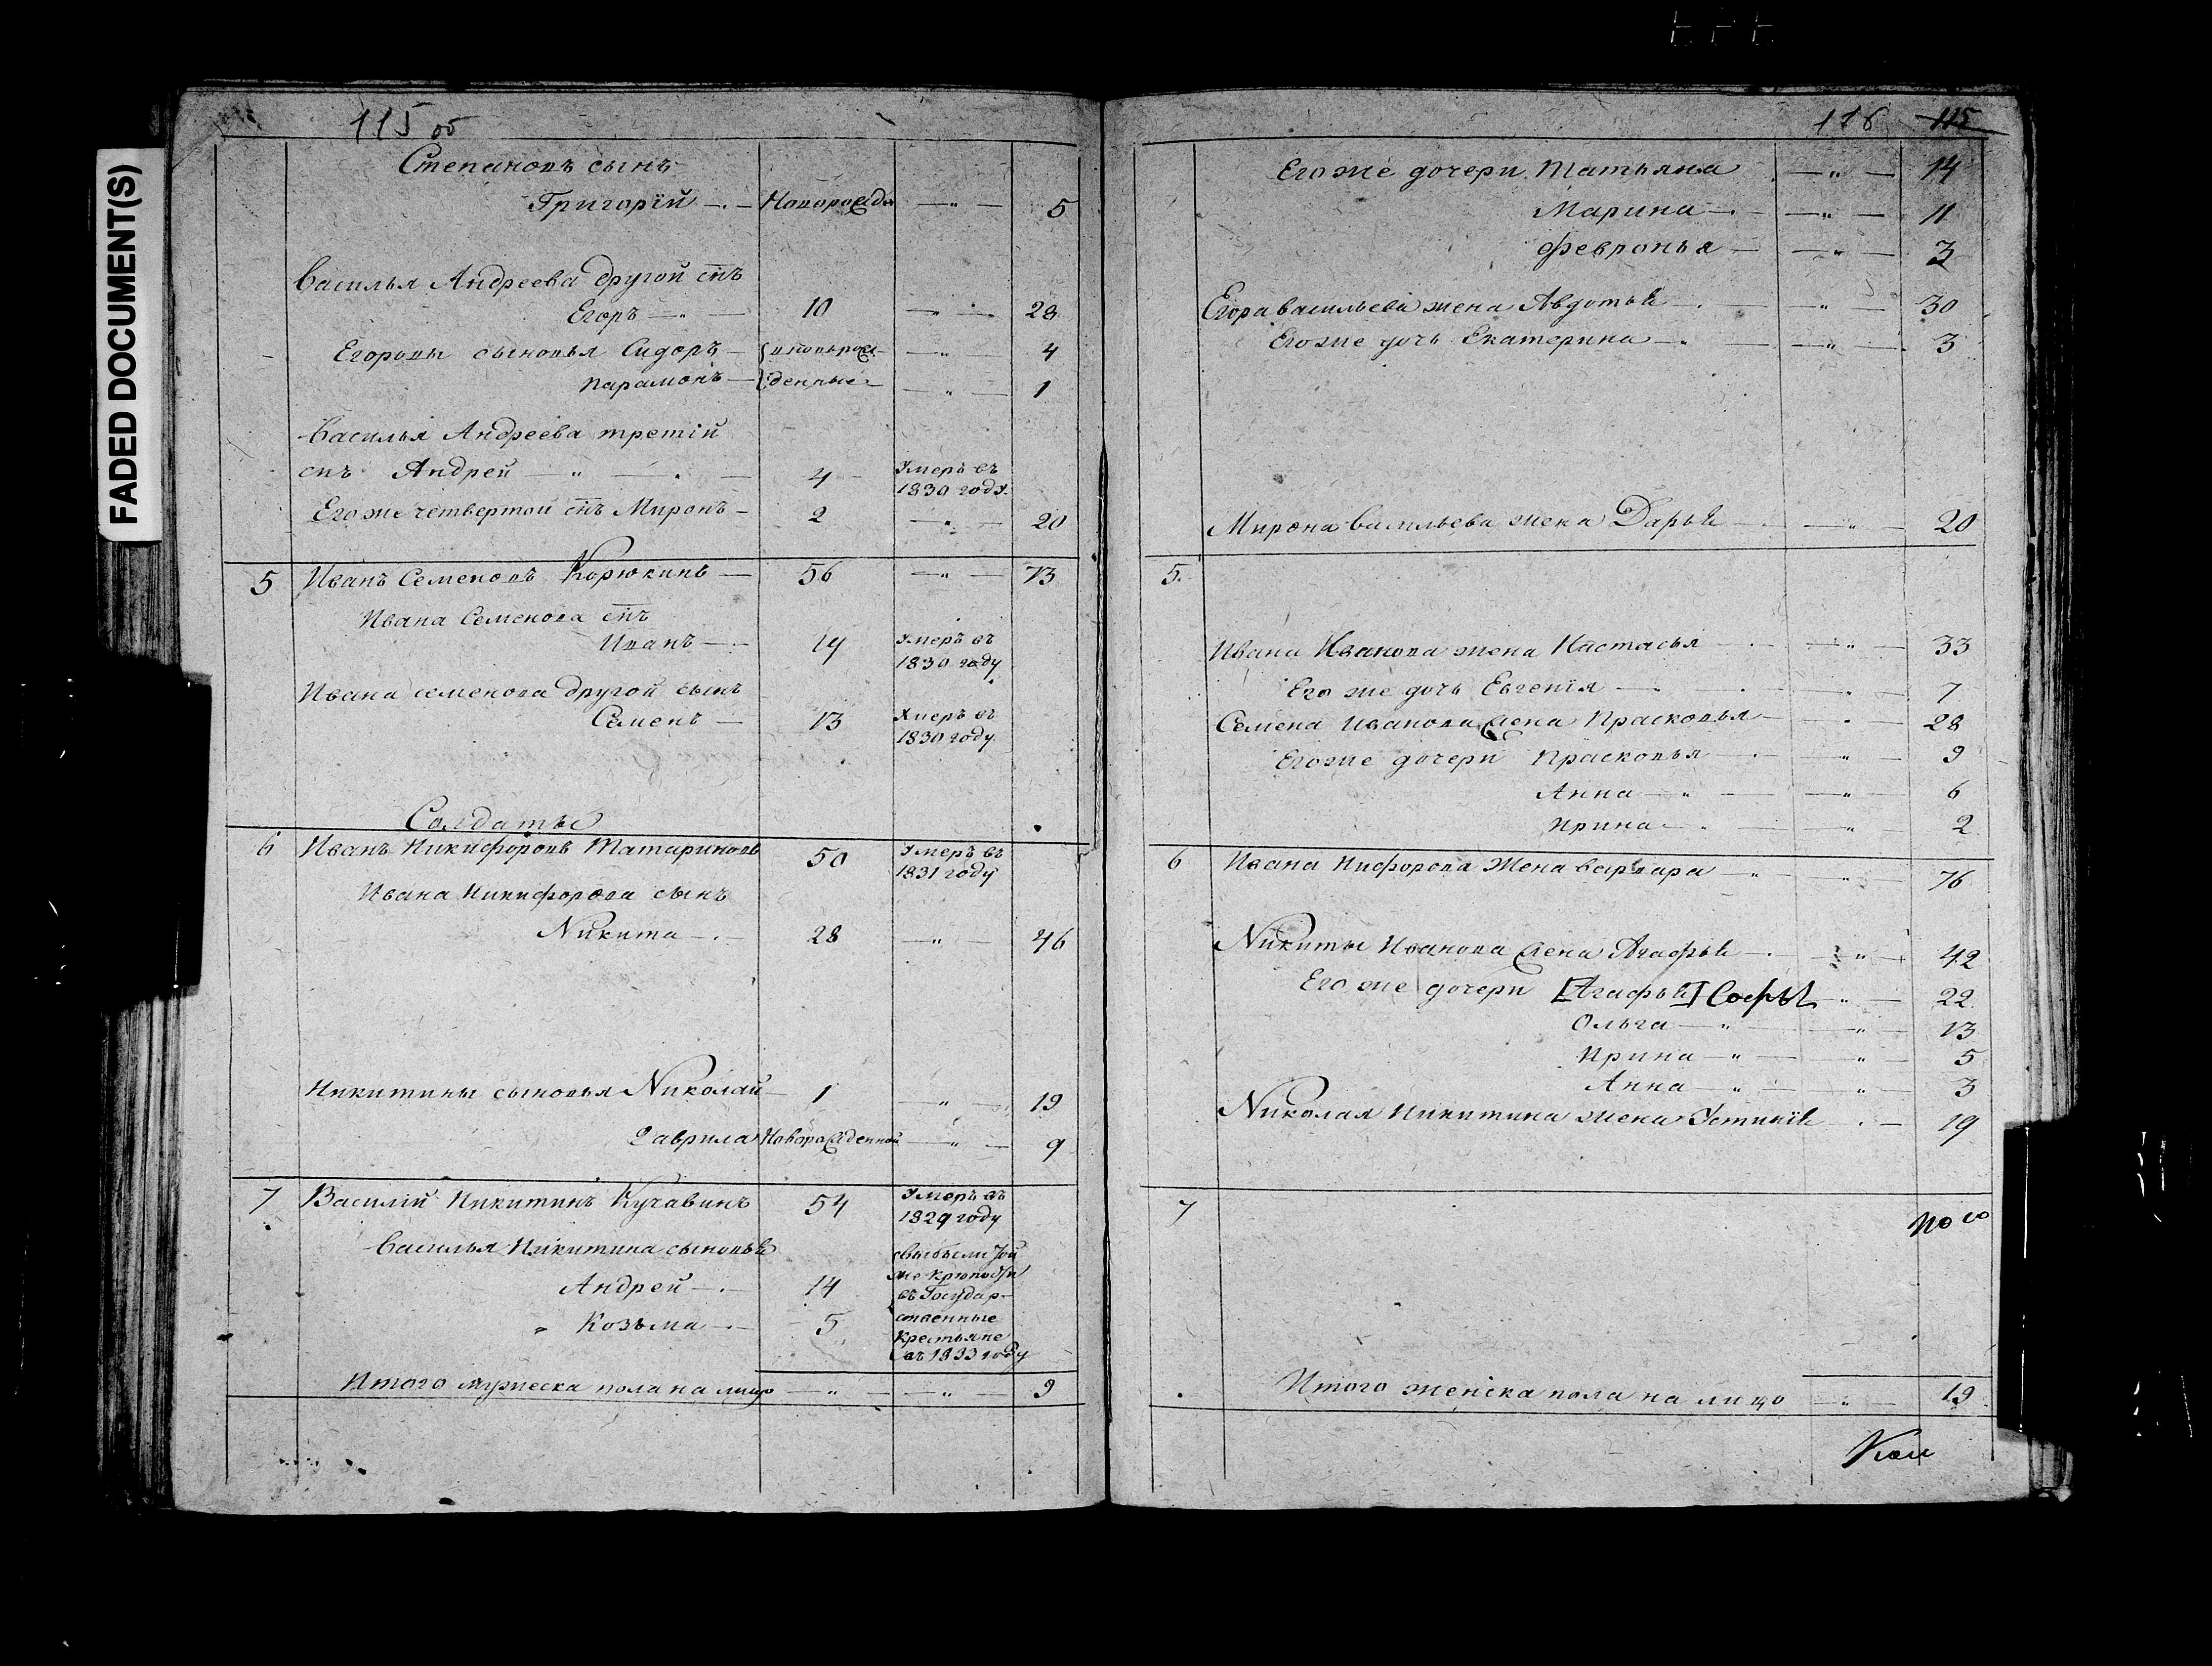 FADED DOCUMENT(S)
115 об
Степановъ сынъ
Григорій — Новорожде — " — 5
Василья Андреева другой снъ
Егоръ — " — 10 — " — 28
Егоровы сыновья Сидоръ — — " — 4
Парамонъ — — " — 1
Василья Андреева третій
снъ Андрей — " — 4 Умеръ въ
1830 году
Его же четвертой снъ Миронъ — 2 — " — 20
5 Иванъ Семеновъ Корюкинъ — 56 — " — 73
Ивана Семенова снъ
Иванъ — 19 Умеръ въ
1830 году
Ивана семенова другой сынъ
Семенъ — 13 Умеръ въ
1830 году
Солдаты
6 Иванъ Никифоровъ Татариновъ 50 Умеръ въ
1831 году
Ивана Никифорова сынъ
Никита — 28 — " — 46
Никитины сыновья Николай 1 — " — 19
Гаврила Новорожденной — " — 9
7 Василій Никитинъ Кучавинъ 54 Умеръ въ
1829 году
Василья Никитина сыновья
Андрей — 14
въ Государ-
Козьма — 5 ственные
Крестьяне
въ 1833 году
Итого мужеска пола на лицо — " — — " — 9
116 115
Его же дочери Татьяна — " — 14
Марина — — " — 11
Февронья — — " — 3
Егора васильева жена Авдотья — " — 30
Его же дочь Екатерина — — " — 3
Мирона Васильева жена Дарья — " — 20
5.
Ивана Иванова жена Настасья — " — 33
Его же дочь Евгенія — " — 7
Семена Иванова жена Прасковья — " — 28
Его же дочери Прасковья — " — 9
Анна — " — — " — 6
Ирина — " — — " — 2
6 Ивана Нифорова Жена варвара — " — " — 76
Никиты Иванова жена Агафья — " — 42
Его же дочери [Агафья] Софья — " — 22
Ольга — " — — " — 13
Ирина — " — — " — 5
Анна — " — — " — 3
Николая Никитина жена Устинія — 19
7
Итого женска пола на лицо — " — 19